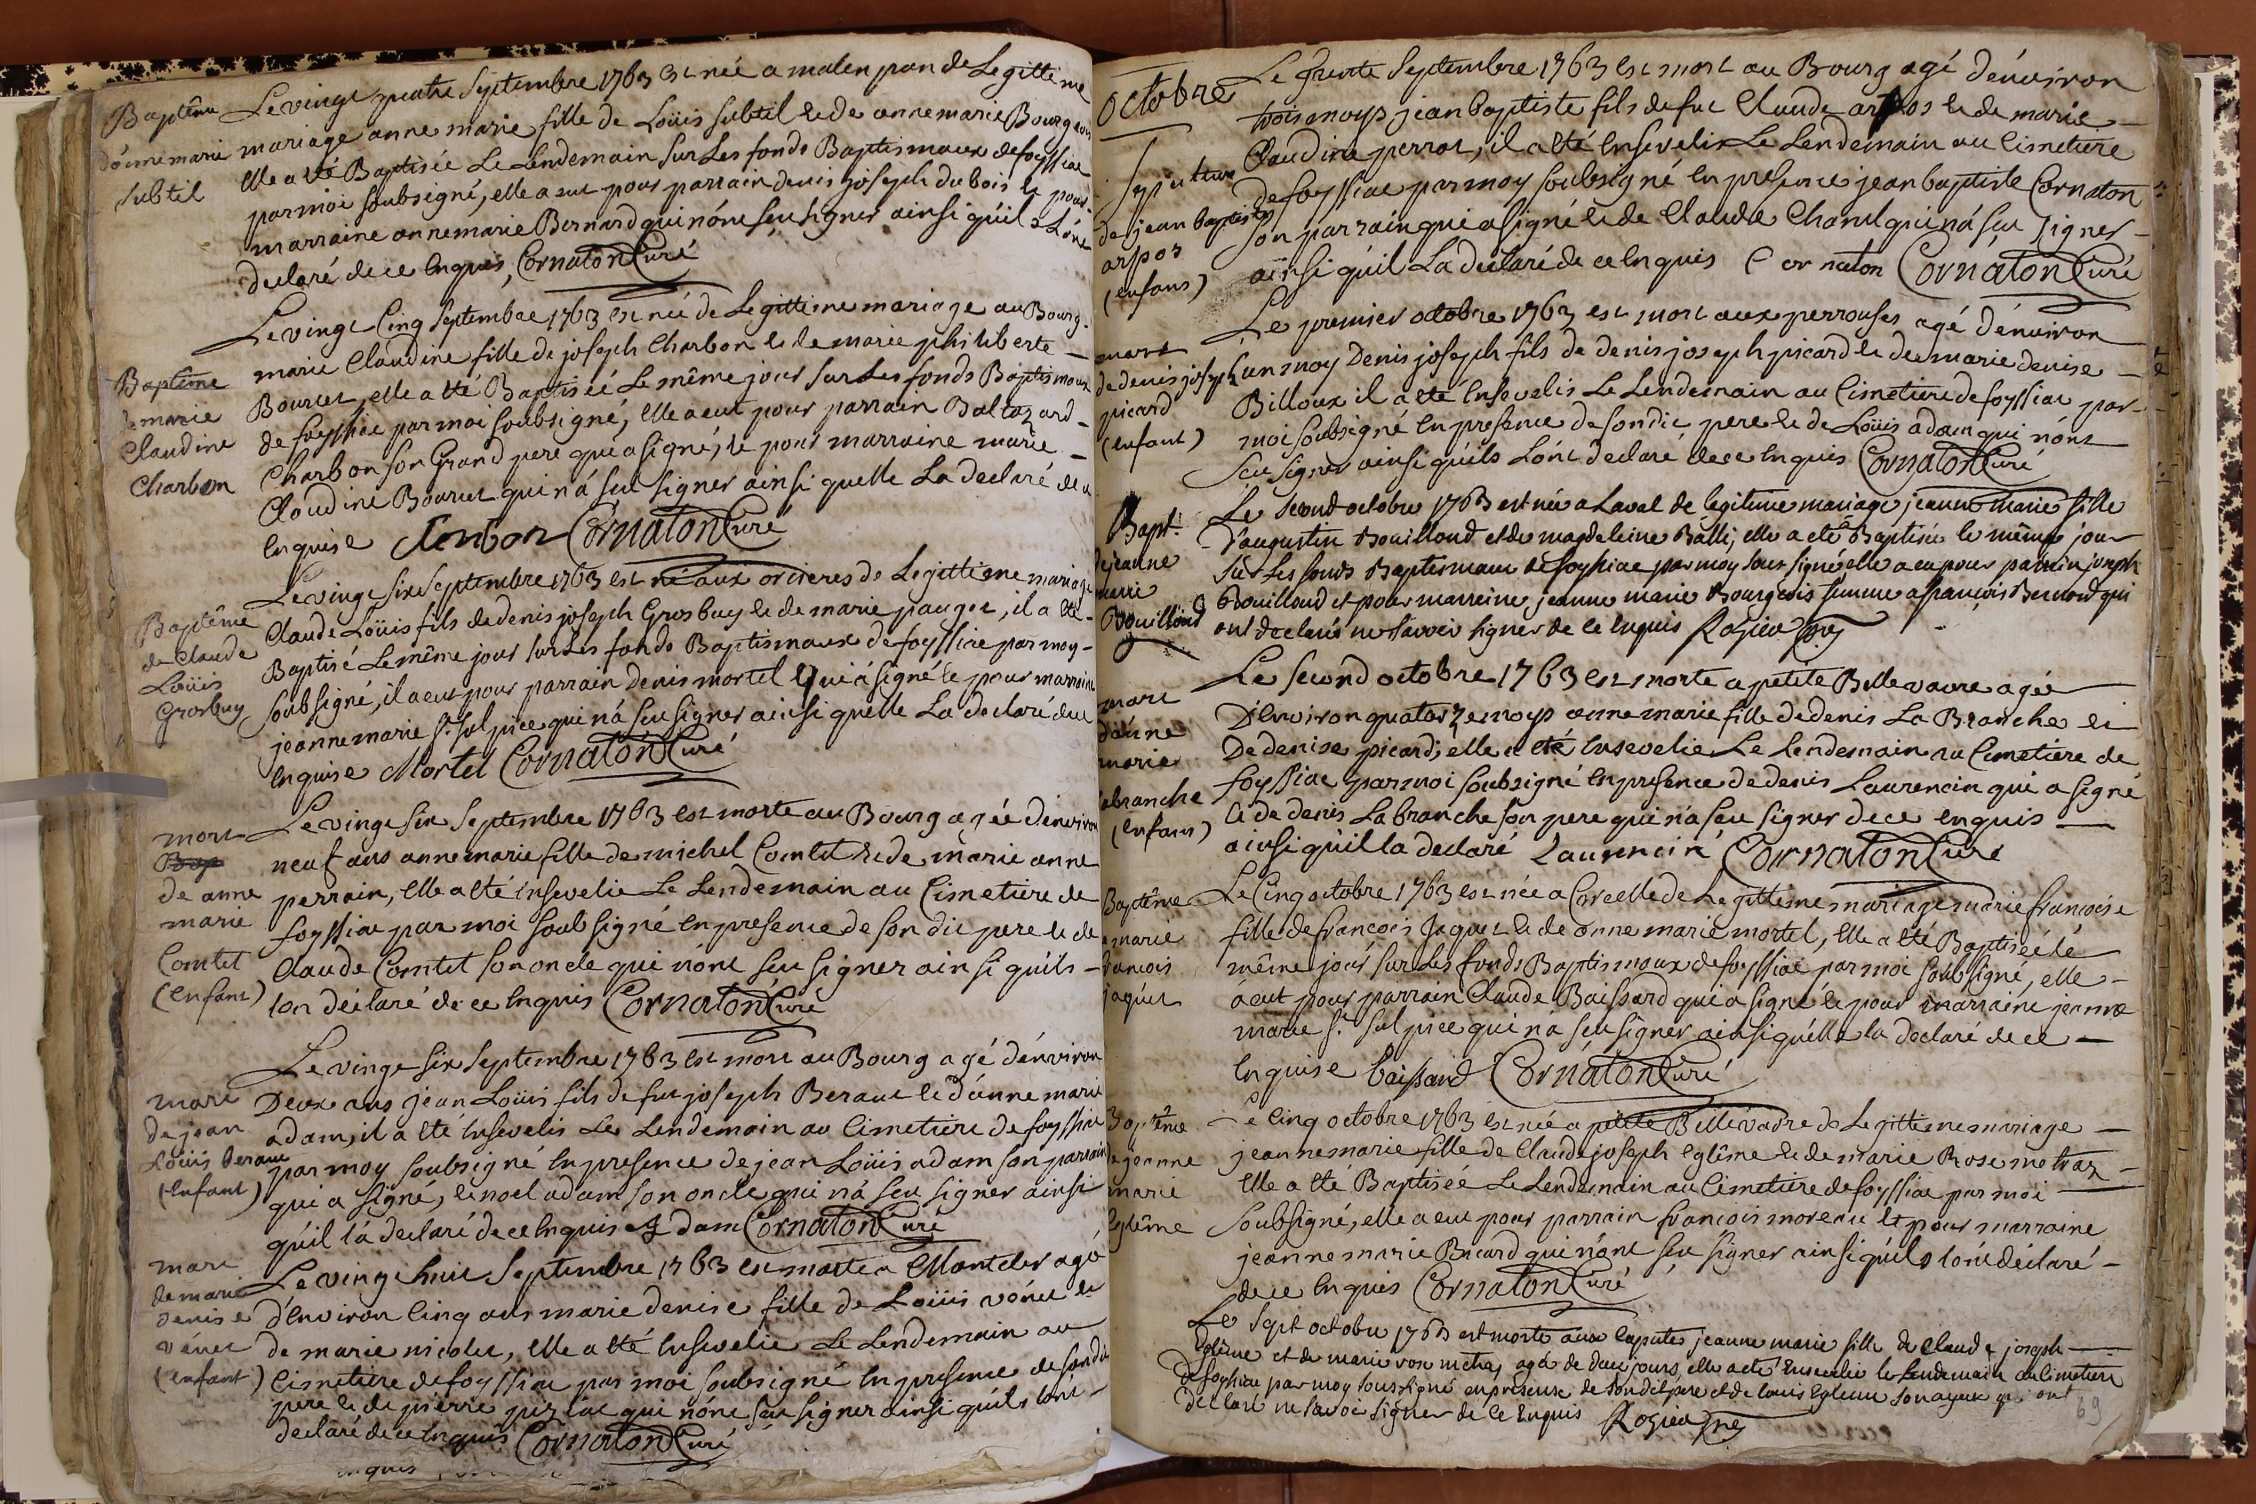 Baptême
d'annemarie
subtil
Le vingt quatre Septembre 1763 est née a malen pan de Legittime
mariage anne marie fille de Loüis subtil et de annemarie Bourgeois
Elle a été Baptisée Le Lendemain sur Les fonds Baptismaux de foyssiac
par moi soubsigné, elle a eut pour parrain denis joseph dubois et pour
marraine annemarie Bernard qui n'ont seu signer ainsi qu'ils L'ont
declaré de ce Enquis, Cornaton Curé
Baptême
de marie
Claudine
Charbon
Le vingt Cinq Septembre 1763 est née de Legittime mariage au Bourg
marie Claudine fille de joseph Charbon et de marie philiberte
Bourcet, elle a été Baptisée Le même jour sur Les fonds Baptismaux
de foyssiac par moi soubsigné, Elle a eut pour parrain Baltazard
Charbon son Grand pere qui a signé, et pour marraine marie
Claudine Bourcet qui n'a seu signer ainsi quelle La declaré de ce
Enquise Charbon Cornaton Curé
Baptême
de Claude
Loüis
Grosbuy
Le vingt six Septembre 1763 est né aux orcieres de Legittime mariage
Claude Loüis fils de denis joseph Grosbuy et de marie pauget, il a été
Baptisé Le même jour sur Les fonds Baptismaux de foyssiac par moy
soubsigné, il a eut pour parrain Denis mortel qui a signé et pour marraine
jeanne marie St. sulpice qui n'a seu signer ainsi quelle La declaré de ce
Enquise Mortel Cornaton Curé
mort
Bap
de anne
marie
Comtet
(Enfant)
Le vingt six Septembre 1763 est morte au Bourg agée d'environ
neuf ans anne marie fille de michel Comtet et de marie anne
perrain, Elle a été Ensevelie Le Lendemain au Cimetiere de
foyssiac par moi soubsigné En presence de son dit pere et de
Claude Comtet son oncle qui n'ont seu signer ainsi qu'ils
lon déclaré de ce Enquis Cornaton Curé
mort
de jean
Loüis beraut
(Enfant)
Le vingt six Septembre 1763 est mort au Bourg agé d'environ
Deux ans jean Loüis fils de fut joseph Beraut et d'anne marie
adam, il a été Ensevelis Le Lendemain au Cimetiere de foyssiac
par moy soubsigné En presence de jean Loüis adam son parrain
qui a signé, et noel adam son oncle qui n'a seu signer ainsi
qu'il l'a declaré de ce Enquis Adam Cornaton Curé
mort
de marie
denise
vénet
(Enfant)
Le vingt huit Septembre 1763 est morte a Montcler agé
d'Environ Cinq ans marie denise fille de Loüis vénet et
de marie nicolet, Elle a été Ensevelie Le Lendemain au
Cimetiere de foyssiac par moi soubsigné En presence de son dit
pere et de pierre qui n'ont seu signer ainsi qu'ils lont
declaré de ce Enquis Cornaton Curé
Enquis
Octobre
Sepulture
de jean baptiste
arpos
(Enfans)
Le trente Septembre 1763 est mort au Bourg agé d'environ
trois moys, jean baptiste fils de fut Claude arpos et de marie
Claudine perrot, il a été Ensevelis Le Lendemain au Cimetiere
de foyssiac par moy soubsigné En presence jean baptiste Cornaton
son parrain qui a signé et de Claude Charul qui n'a seu Signer
ainsi qu'il La declaré de ce Enquis Cornaton Cornaton Curé
mort
de denis joseph
picard
(enfant)
Le premier octobre 1763 est mort aux perrouses agé d'environ
un moy Denis joseph fils de denis joseph picard et de marie denise
Billoux il a été Ensevelis Le Lendemain au Cimetiere de foyssiac par
moi soubsigné En presence de son dit pere et de Loüis adam qui n'ont
seu signer ainsi qu'ils L'ont declaré de ce Enquis Cornaton Curé
Bapt.
de jeanne
marie
Bouilloud
Le second octobre 1763 est née a Laval de legitime mariage jeanne marie fille
d'augustin Bouilloud et de magdeleine Balli; elle a été Baptisée le même jour
sur Les fonds Baptismaux de foyssiac par moy sous signé elle a eu pour parrain joseph
Bouilloud et pour marreine jeanne marie Bourgeois femme a francois Bernard qui
ont declaré ne savoir signer de ce Enquis
mort
d'anne
marie
Labranche
(Enfans)
Le second octobre 1763 est morte a petite Bellevavre agée
D'Environ quatorze moys anne marie fille de denis La Branche et
De denise picard; elle a été Ensevelie Le Lendemain au Cimetiere de
foyssiac par moi soubsigné En presence de denis Laurencin qui a signé
et de denis Labranche son pere qui n'a seu signer de ce Enquis
ainsi qu'il la declaré Laurencin Cornaton Curé
Baptême
marie
francois
jaquet
Le Cinq octobre 1763 est née a Corcelle de Legittime mariage marie francoise
fille de francois Jaquet et de anne marie mortel, Elle a été Baptisée lé
même jour sur Les fonds Baptismaux de foyssiac par moi soubsigné, elle
a eut pour parrain Claude Baissard qui a signé et pour marraine jeanne
marie St. sulpice qui n'a seu signer ainsi qu'elle la declaré de ce
Enquise baissard Cornaton Curé
Baptême
de jeanne
marie
Eglême
Le Cinq octobre 1763 est née a petite Bellevavre de Legittime mariage
jeanne marie fille de Claude joseph Eglême et de marie Rose metraz
Elle a été Baptisée Le Lendemain au Cimetiere de foyssiac par moi
Soubsigné, elle a eut pour parrain francois moreau et pour marraine
jeanne marie Bicard qui n'ont seu signer ainsi qu'ils lont déclaré
de ce Enquis Cornaton Curé
Le Sept octobre 1763 est morte aux jeanne marie fille de Claude joseph
Eglême et de marie rose metra, agée de deux jours, elle a été Ensevelie le Lendemain au Cimetiere
De foyssiac par moy soussigné en presence de son dit pere et de Louis Egleme son ayeux qui ont
Declaré ne savoir signer de ce Enquis
69